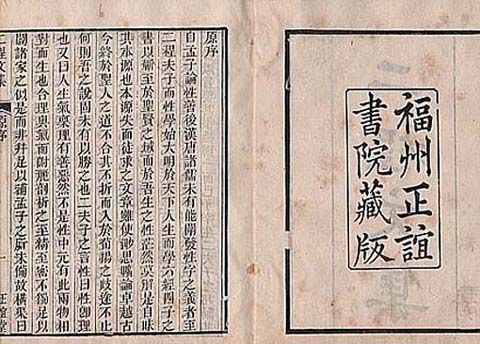 福州正誼
書院藏版
原序
自孟子論性善後漢唐諸儒未有能闡發性學之義者至
二程夫子而性學始大明於天下人生而學六經四子之
書以蘄至於聖賢之域而於吾生之性茫然莫辨是自昧
其本源也本源失而徒求之文章雖使思論卓越古
今終於聖人之道不合其不折而入於荀揚之歧途不止
何則吾之說固未有以勝之也二夫子之言性曰性卽理
也又曰人生氣稟理有善惡然不是性中元有此兩物相
對而生也合理與氣而剖析之至精至密不獨足以
闢諸家之似是而非幷足以補孟子之所未備故橫渠曰
二程文集 原序 一 正誼堂